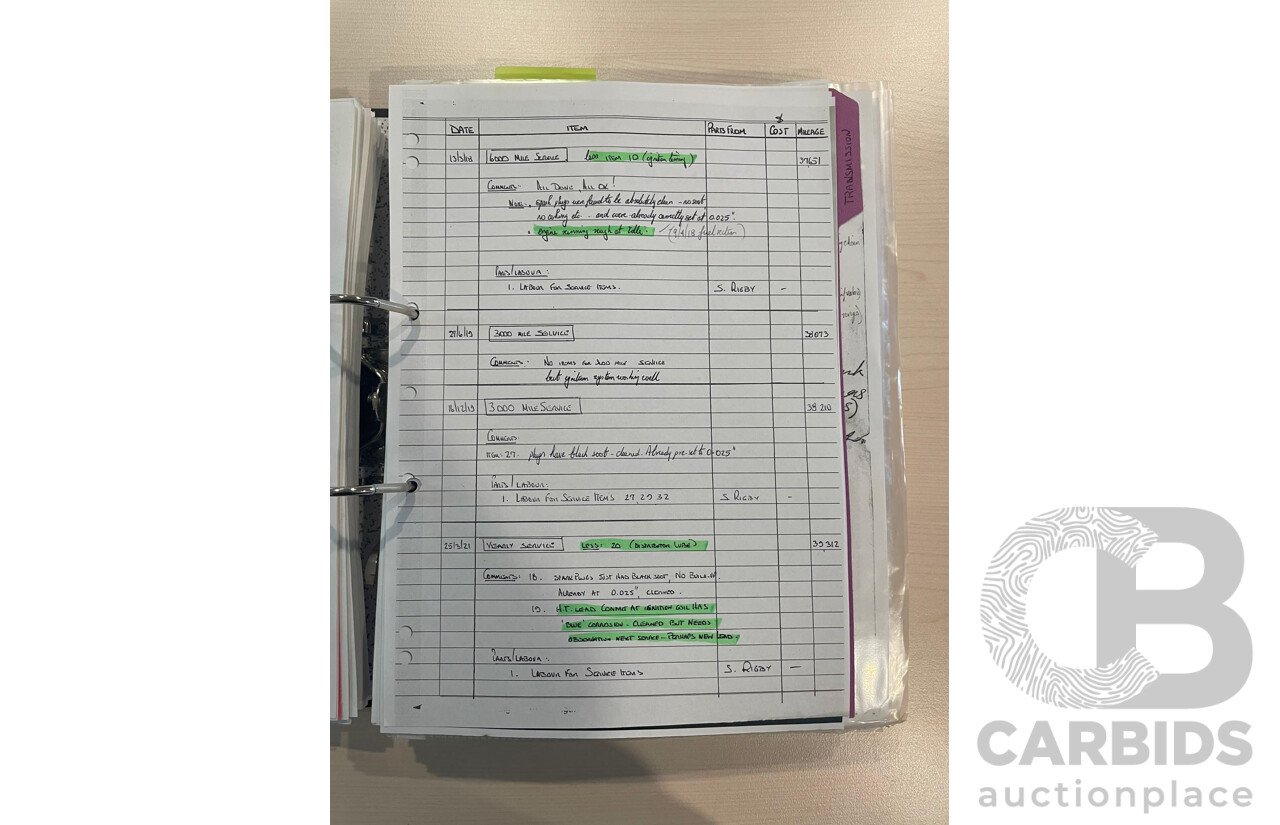 $
DATE ITEM PARTS FROM COST MILEAGE
13/3/18 6000 MILE SERVICE less item 10 (ignition timing) 37651
COMMENTS: ALL DONE, ALL OK!
NOTE: • Spark plugs were found to be absolutely clean - no soot,
no oiling etc. - and were already correctly set at 0.025".
• engine running rough at idle. (9/4/18 fuel section)
PARTS/LABOUR:
1. LABOUR FOR SERVICE ITEMS. S. RIGBY -
27/6/19 3000 MILE SERVICE 38073
COMMENTS: NO ITEMS FOR 3000 MILE SERVICE
but ignition system working well
16/12/19 3000 MILE SERVICE 38,210
COMMENTS:
ITEM: 27. plugs have black soot - cleaned. Already pre-set to 0.025"
PARTS/LABOUR:
1. LABOUR FOR SERVICE ITEMS 27, 29, 32 S. RIGBY -
25/3/21 YEARLY SERVICE LESS: 20 (DISTRIBUTOR LUBE) 39,312
COMMENTS: 18. SPARK PLUGS JUST HAD BLACK SOOT, NO BUILD-UP.
ALREADY AT 0.025", CLEANED.
19. H.T. LEAD CONTACT AT IGNITION COIL HAS
'BLUE' CORROSION - CLEANED BUT NEEDS
OBSERVATION NEXT SERVICE - PERHAPS NEW LEAD.
PARTS/LABOUR:
1. LABOUR FOR SERVICE ITEMS S. RIGBY -
TRANSMISSION
CB
CARBIDS
auctionplace